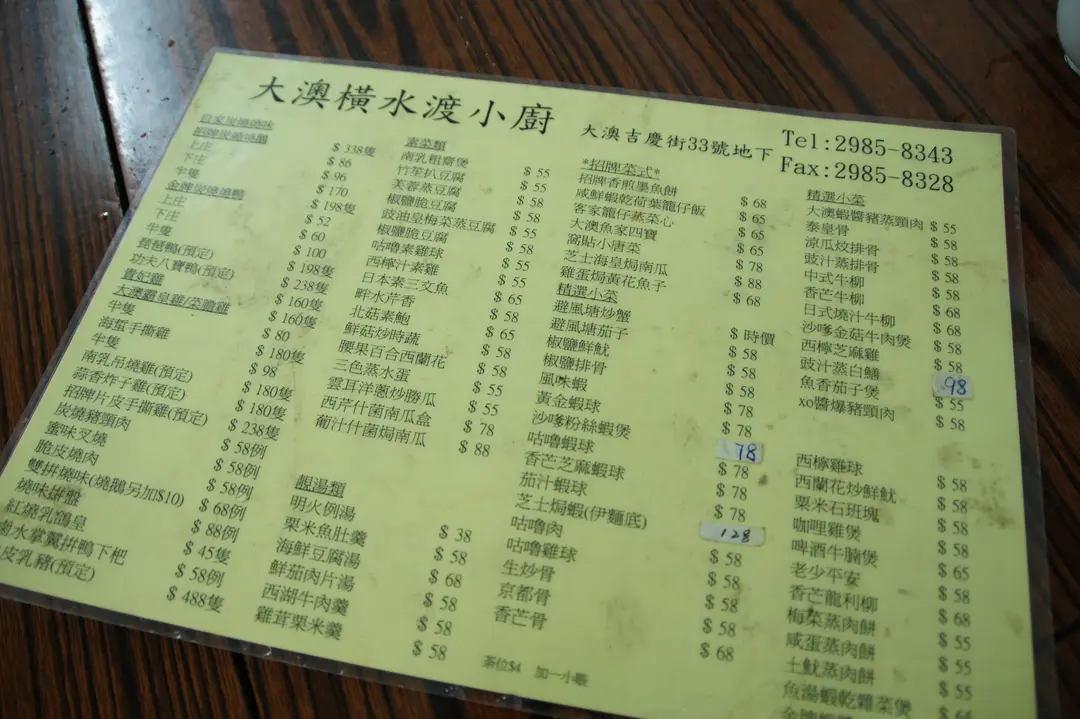 大澳橫水渡小廚
大澳吉慶街33號地下
Tel:2985-8343
Fax:2985-8328
自家炭燒燒味
招牌炭燒燒鵝 $338隻
上庄 $86
下庄 $96
半隻 $170
金牌炭燒燒鴨 $198隻
上庄 $52
下庄 $60
半隻 $100
琵琶鴨(預定) $198隻
功夫八寶鴨(預定) $238隻
貴妃雞 $160隻
大澳霸皇雞/菜膽雞 $160隻
半隻 $80
海蜇手撕雞 $180隻
半隻 $98
南乳吊燒雞(預定) $180隻
蒜香炸子雞(預定) $180隻
招牌片皮手撕雞(預定) $238隻
炭燒豬頸肉 $58例
蜜味叉燒 $58例
脆皮燒肉 $58例
雙拼燒味(燒鵝另加$10) $68例
燒味拼盤 $88例
紅燒乳鴿皇 $45隻
滷水掌翼拼鴨下杷 $58例
皮乳豬(預定) $488隻
素菜類
南乳粗齋煲
竹笙扒豆腐
芙蓉蒸豆腐
椒鹽脆豆腐
豉油皇梅菜蒸豆腐
椒鹽脆豆腐
咕嚕素雞球
西檸汁素雞
日本素三文魚
畔水芹香
北菇素鮑
鮮菇炒時蔬
腰果百合西蘭花
三色蒸水蛋
雲耳洋蔥炒勝瓜
西芹什菌南瓜盒
葡汁什菌焗南瓜
$55
$55
$58
$55
$58
$55
$55
$65
$58
$65
$58
$58
$55
$55
$78
$88
靚湯類
明火例湯 $38
粟米魚肚羹 $58
海鮮豆腐湯 $68
鮮茄肉片湯 $58
西湖牛肉羹 $58
雞茸粟米羹 $58
*招牌菜式*
招牌香煎墨魚餅 $68
咸鮮蝦乾荷葉龍仔飯 $65
客家龍仔蒸菜心 $65
大澳魚家四寶 $65
窩貼小唐菜 $78
芝士海皇焗南瓜 $88
雞蛋焗黃花魚子 $68
精選小菜
避風塘炒蟹 $時價
避風塘茄子 $58
椒鹽鮮魷 $58
椒鹽排骨 $58
風味蝦 $78
黃金蝦球 $78
沙嗲粉絲蝦煲 78
咕嚕蝦球 $78
香芒芝麻蝦球 $78
茄汁蝦球 $78
芝士焗蝦(伊麵底) 128
咕嚕肉 $58
咕嚕雞球 $58
生炒骨 $58
京都骨 $58
香芒骨 $68
精選小菜
大澳蝦醬豬蒸頸肉 $55
泰皇骨 $58
涼瓜炆排骨 $58
豉汁蒸排骨 $58
中式牛柳 $58
香芒牛柳 $68
日式燒汁牛柳 $68
沙嗲金菇牛肉煲 $58
西檸芝麻雞 $58
豉汁蒸白鱔 98
魚香茄子煲 $55
xo醬爆豬頸肉 $58
西檸雞球 $58
西蘭花炒鮮魷 $58
粟米石班塊 $58
咖哩雞煲 $58
啤酒牛腩煲 $65
老少平安 $58
香芒龍利柳 $68
梅菜蒸肉餅 $55
咸蛋蒸肉餅 $55
土魷蒸肉餅 $55
魚湯蝦乾雜菜煲
茶位$4 加一小賬